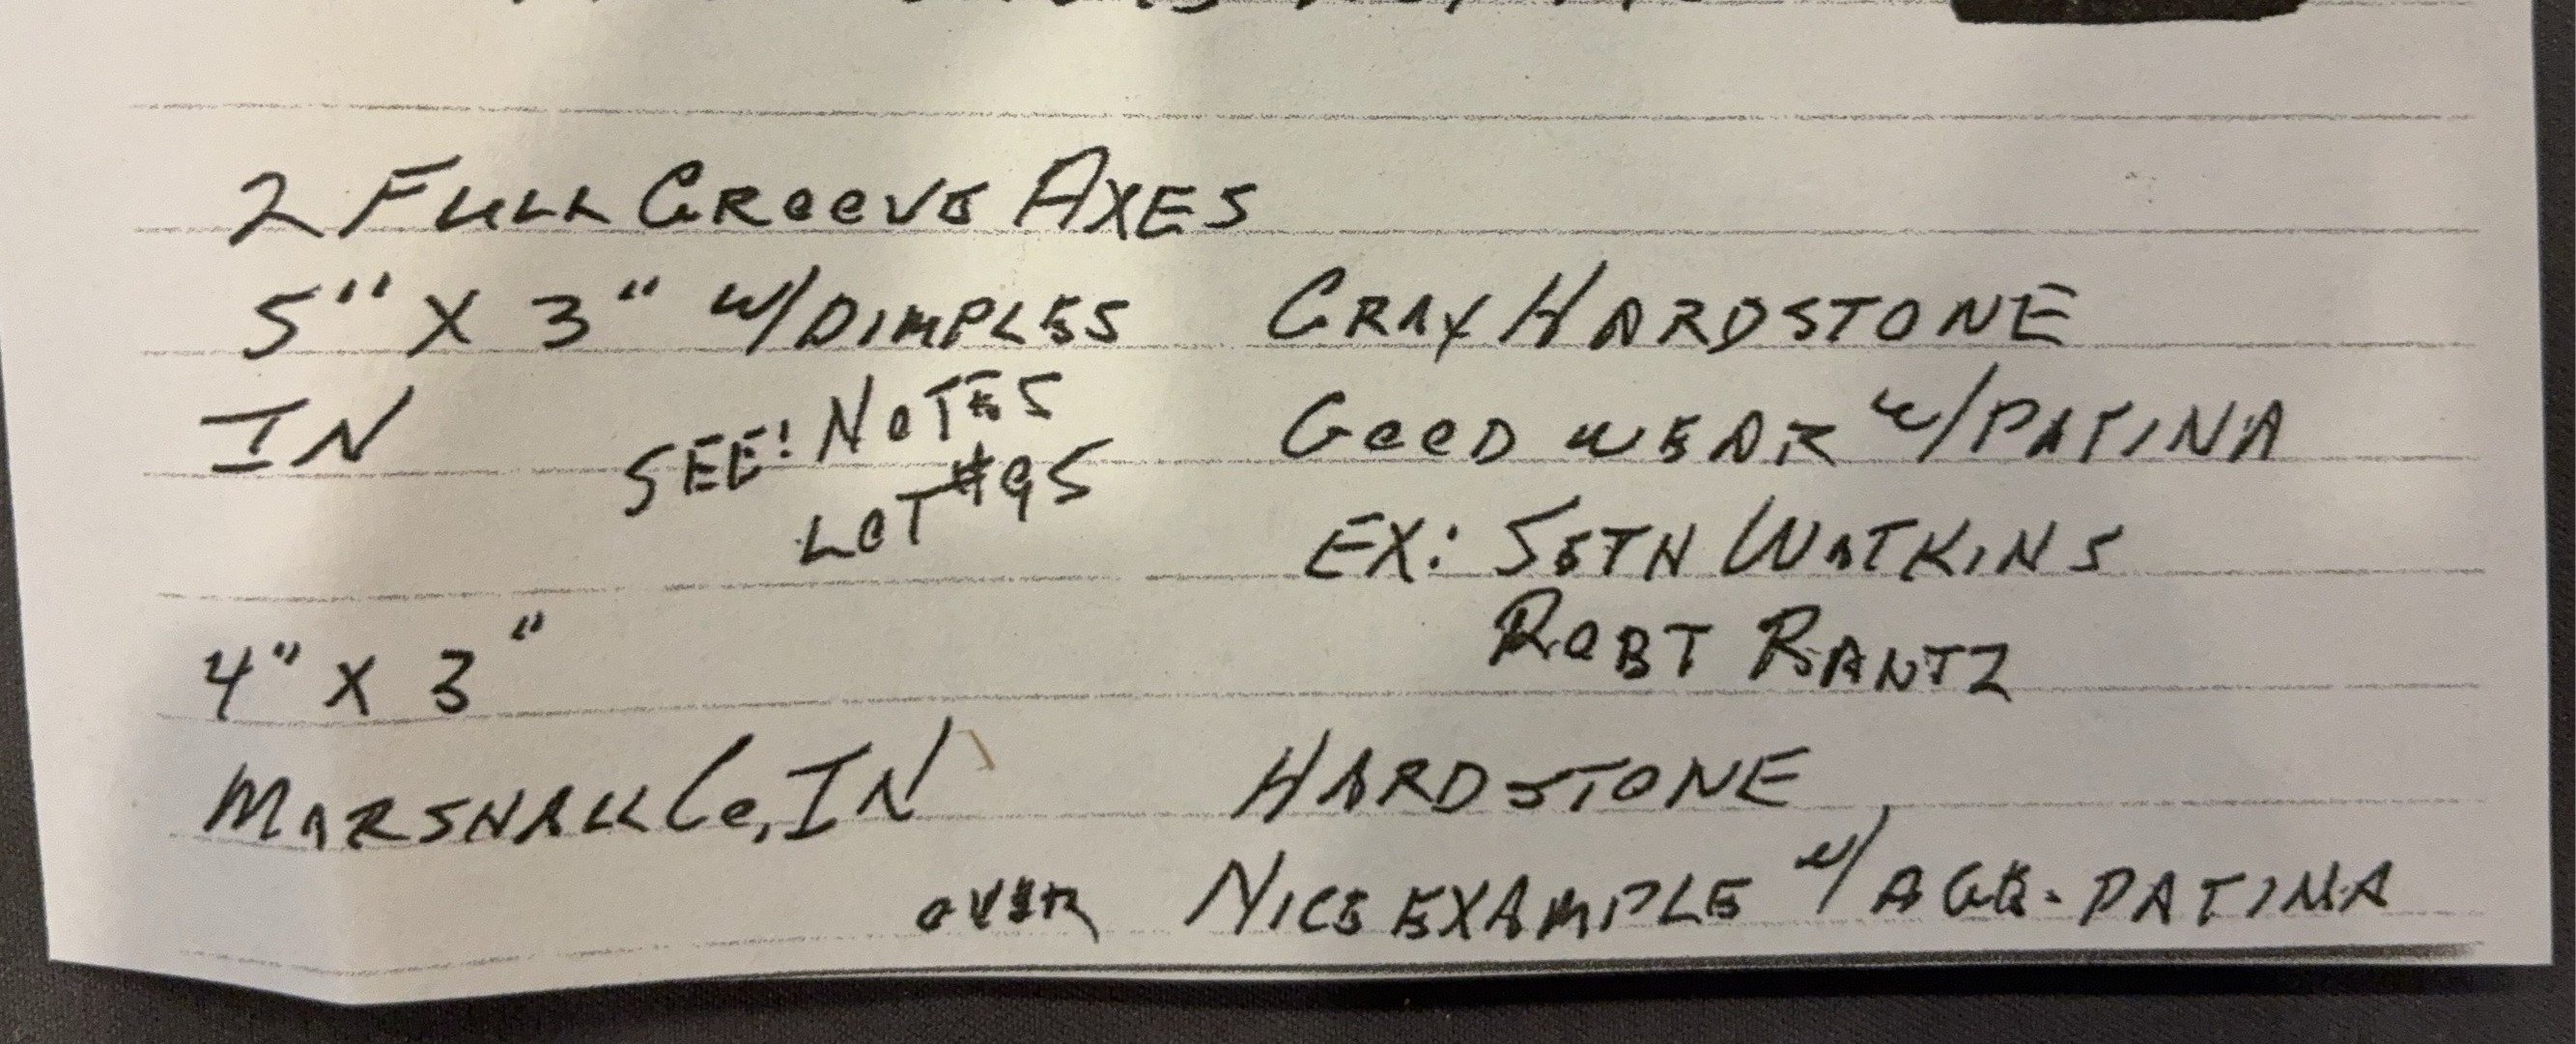 2 FULL GROOVE AXES
5" X 3" W/DIMPLES GRAY HARDSTONE
IN SEE: NOTES GOOD WEAR W/PATINA
LOT #95
EX: SETH WATKINS
ROBT RANTZ
4" X 3"
MARSHALL CO, IN HARDSTONE
OVER NICE EXAMPLE W/ AGE-PATINA